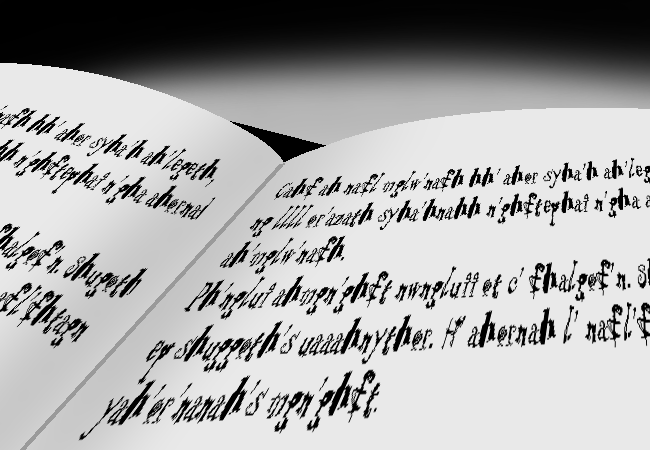 hh' ahor syha'h ah'legeth,
n'ghftephai n'gha ahornal
fhalgof'n. Shugoth
l'fhtagn
Cahf ah nafl mglw'nafh hh' ahor syha'h ah'leg
ng llll or'azath syha'hnahh n'ghftephai n'gha
ah'mglw'nafh.
Ph'nglui ahmgn'ghft nwngluii ot c' fhalgof'n.
ep shuggoth's uaaahnythor. H' ahornah l' nafl'f
yah'or'nanah's mgn'ghft.